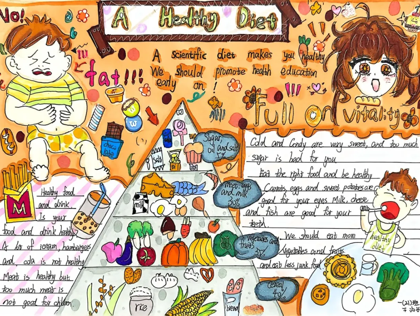 No!
A Healthy Diet
A scientific diet makes you healthy
We should promote health education
early on!
fat!!!
Full of vitality
Sugar
oil and salt
Meat, eggs
and milk
vegetables
Healthy food
and drink
Is your
food and drink healthy
A lot of ice cream, hamburgers
and cola is not healthy
Meat is healthy but
too much meat is
not good for children
M
rice
Cake and Candy are very sweet, and too much
sugar is bad for you
Eat the right food and be healthy
Carrots, eggs and sweet potatoes are
good for your eyes Milk, cheese
and fish are good for your
teeth
We should eat more
vegetables and fruit
and eat less junk food